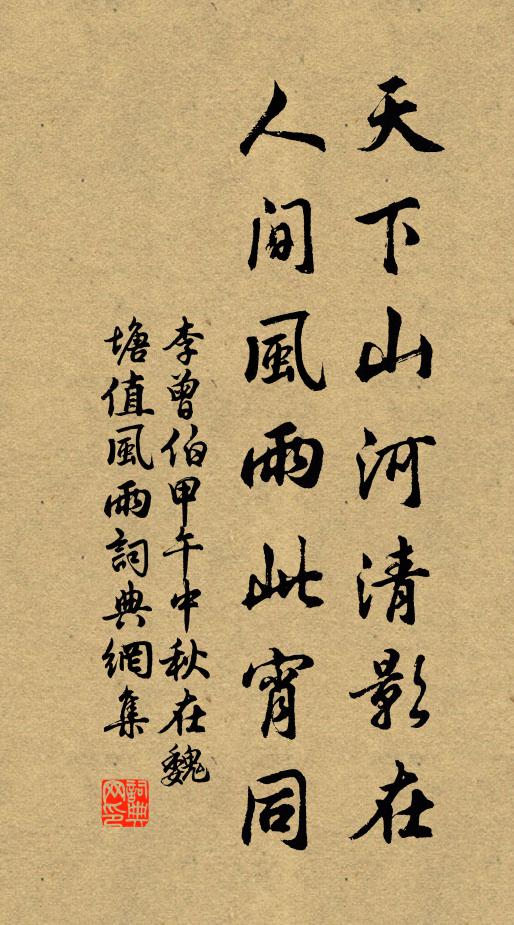 天下山河清影在
人間風雨此宵同
李曾伯甲午中秋在魏
塘值風雨詞典網集
詞典
网印